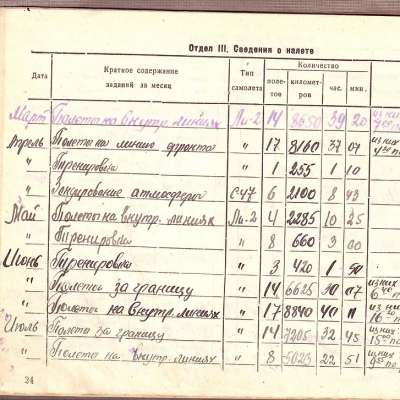 Отдел III. Сведения о налете
Дата Краткое содержание заданий за месяц Тип самолета Количество
полетов километров час. мин.
Март Полеты на внутр. линиях Ли-2 14 8650 39 20 из них
Апрель Полеты на линию фронта " 17 8160 37 07 из них
" Тренировка " 1 255 1 10
" Зондирование атмосферы С-47 6 2100 8 43
Май Полеты на внутр. линиях Ли-2 4 2285 10 25
" Тренировка " 8 660 3 00
Июнь Тренировка " 3 420 1 50
" Полеты за границу " 14 6625 30 07 из них
" Полеты на внутр. линиях " 17 8840 40 11 из них
Июль Полеты за границу " 14 7205 32 45 из них
" Полеты на внутр. линиях " 8 5023 22 51 из них
24